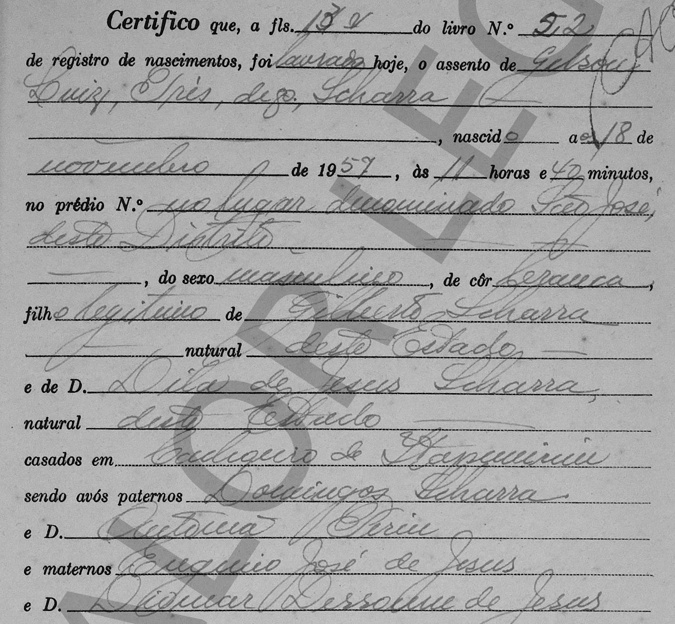 Certifico que, a fls. 13 v do livro N.º 52
de registro de nascimentos, foi lavrado hoje, o assento de Gilson
Luiz, digo, Scharra
, nascido aos 18 de
novembro de 1957, às 11 horas e 40 minutos,
no prédio N.º no lugar denominado São José,
deste Distrito
, do sexo masculino, de côr branca,
filho legitimo de Gilberto Scharra
natural deste Estado
e de D. Dila de Jesus Scharra,
natural deste Estado
casados em Cachoeiro de Itapemirim
sendo avós paternos Domingos Scharra
e D. Antonia Perin
e maternos Eugenio José de Jesus
e D. de Jesus
VALOR LEG